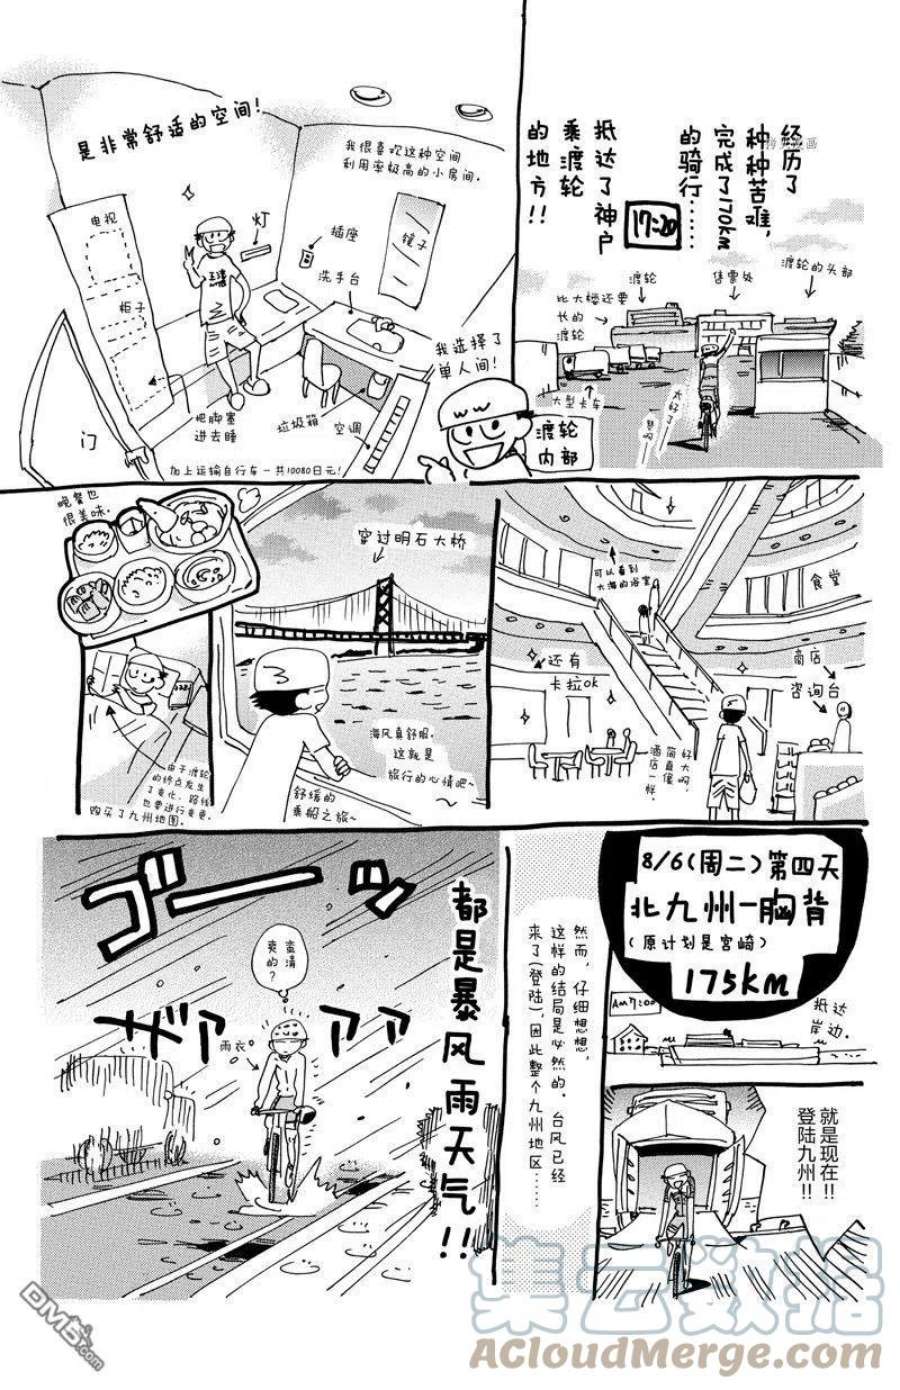 经历了
种种苦难,
完成了170km
的骑行……
抵达了神户
乘渡轮
的地方!!
17:20
渡轮的头部
售票处
渡轮
比大楼还要
长的
渡轮
大型卡车
是非常舒适的空间!
我很喜欢这种空间
利用率极高的小房间。
电视
柜子
灯
插座
洗手台
镜子
门
把脚塞
进去睡
垃圾箱
空调
加上运输自行车一共10080日元!
我选择了
单人间!
渡轮
内部
可以看到
大海的浴室
食堂
商店
咨询台
还有
卡拉ok
好大啊
简直像
酒店一样。
穿过明石大桥
海风真舒服。
这就是
旅行的心情吧~
舒缓的
乘船之旅~
晚餐也
很美味。
由于渡轮
的终点发生
了变化,路线
也要进行变更。
购买了九州地图。
8/6(周二)第四天
北九州-胸背
(原计划是宫崎)
175km
AM7:00
抵达
岸边。
就是现在!!
登陆九州!!
然而,仔细想想,
这样的结局是必然的。台风已经
来了(登陆),因此整个九州地区……
都是暴风雨天气!!
ゴーッ
ザァァァ
雨衣
蛮清
爽的?
集云数据
ACloudMerge.com
DM5.com